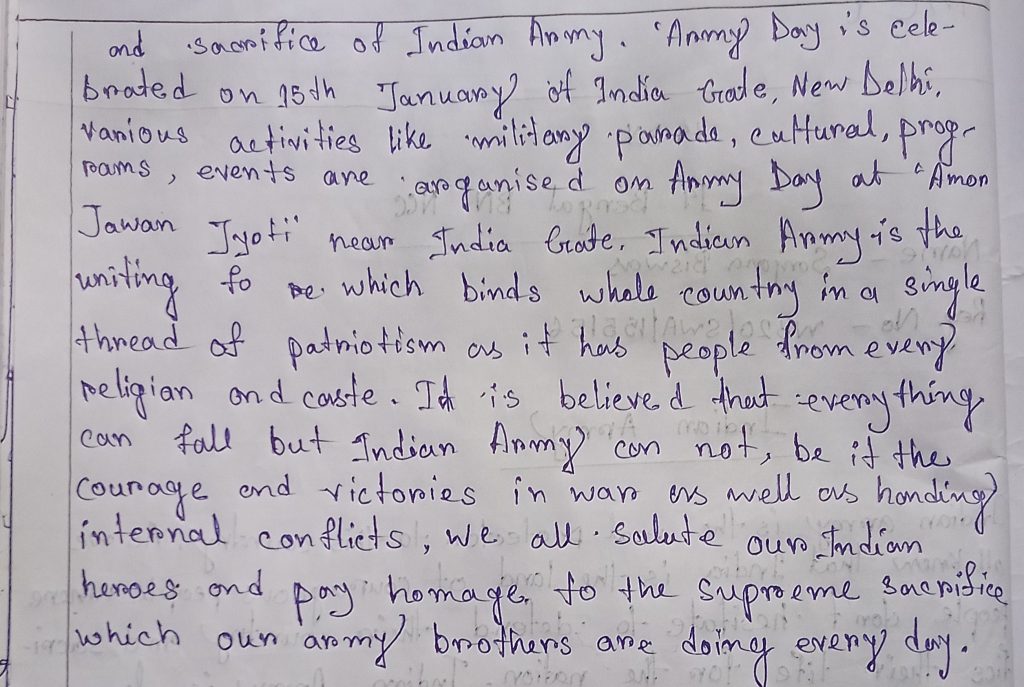 and sacrifice of Indian Army. "Army Day is cele-
brated on 15th January at India Gate, New Delhi,
various activities like military parade, cultural, prog-
rams, events are organised on Army Day at "Amon
Jawan Jyoti" near India Grate. Indian Army is the
uniting fo which binds whole country in a single
thread of patriotism as it has people from every
religian and caste. It is believed that everything
can fall but Indian Army can not, be it the
courage and victories in war as well as handing
internal conflicts, we all salute our Indian
heroes and pay homage to the supreme sacrifice
which our army brothers are doing every day.